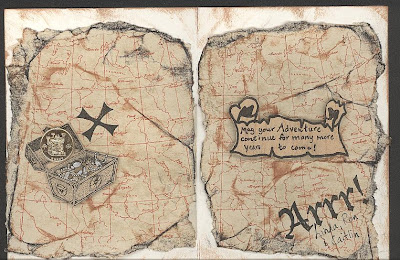 May your Adventure
continue for many more
years to come!
Arrr!
& Caitlin